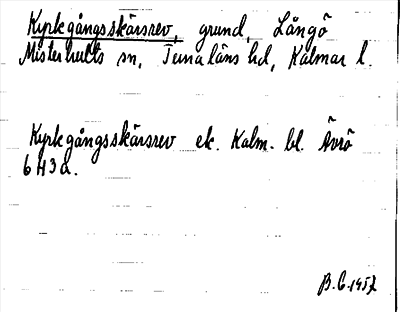 Kyrkgångsskärsrev, grund, Långö
Misterhults sn, Tunaläns hd, Kalmar l.
Kyrkgångsskärsrev ek. Kalm. bl. Ävrö
6 H3a.
B.C. 1957